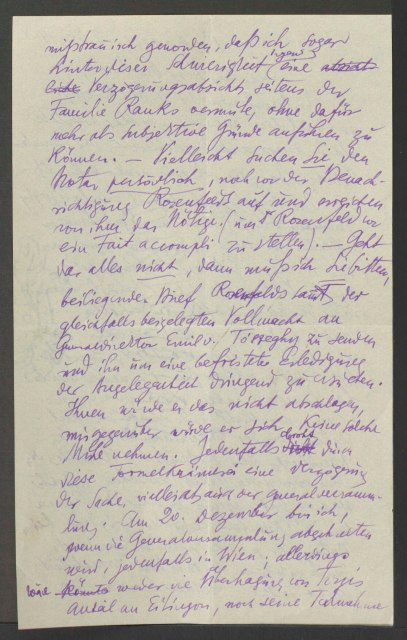 mißtrauisch geworden, daß ich sogar
hinter dieser Schwierigkeit irgend eine absicht-
liche Verzögerungsabsicht seitens der
Familie Ranks vermute, ohne dafür
mehr als subjektive Gründe anführen zu
können. — Vielleicht suchen Sie den
Notar persönlich, noch vor der Benach-
richtigung Rosenfelds auf und erreichen
von ihm das Nötige. (um Rosenfeld vor
ein Fait accompli zu stellen). — Geht
das alles nicht, dann muß ich Sie bitten,
beiliegenden Brief Rosenfelds samt der
gleichfalls beigelegten Vollmacht an
Generaldirektor Emil v. zu senden
und ihn um eine befristete Erledigung
der Angelegenheit dringend zu ersuchen.
Ihnen würde er das nicht abschlagen,
mir gegenüber würde er sich keine solche
Mühe nehmen. Jedenfalls droht durch
diese eine Verzögerung
der Sache, vielleicht auch der Generalversamm-
lung. Am 20. Dezember bin ich,
wenn die Generalversammlung abgehalten
wird, jedenfalls in Wien; allerdings
wäre könnte weder die Übertragung von Tószegis
Anteil an Eitingon, noch seine Teilnahme